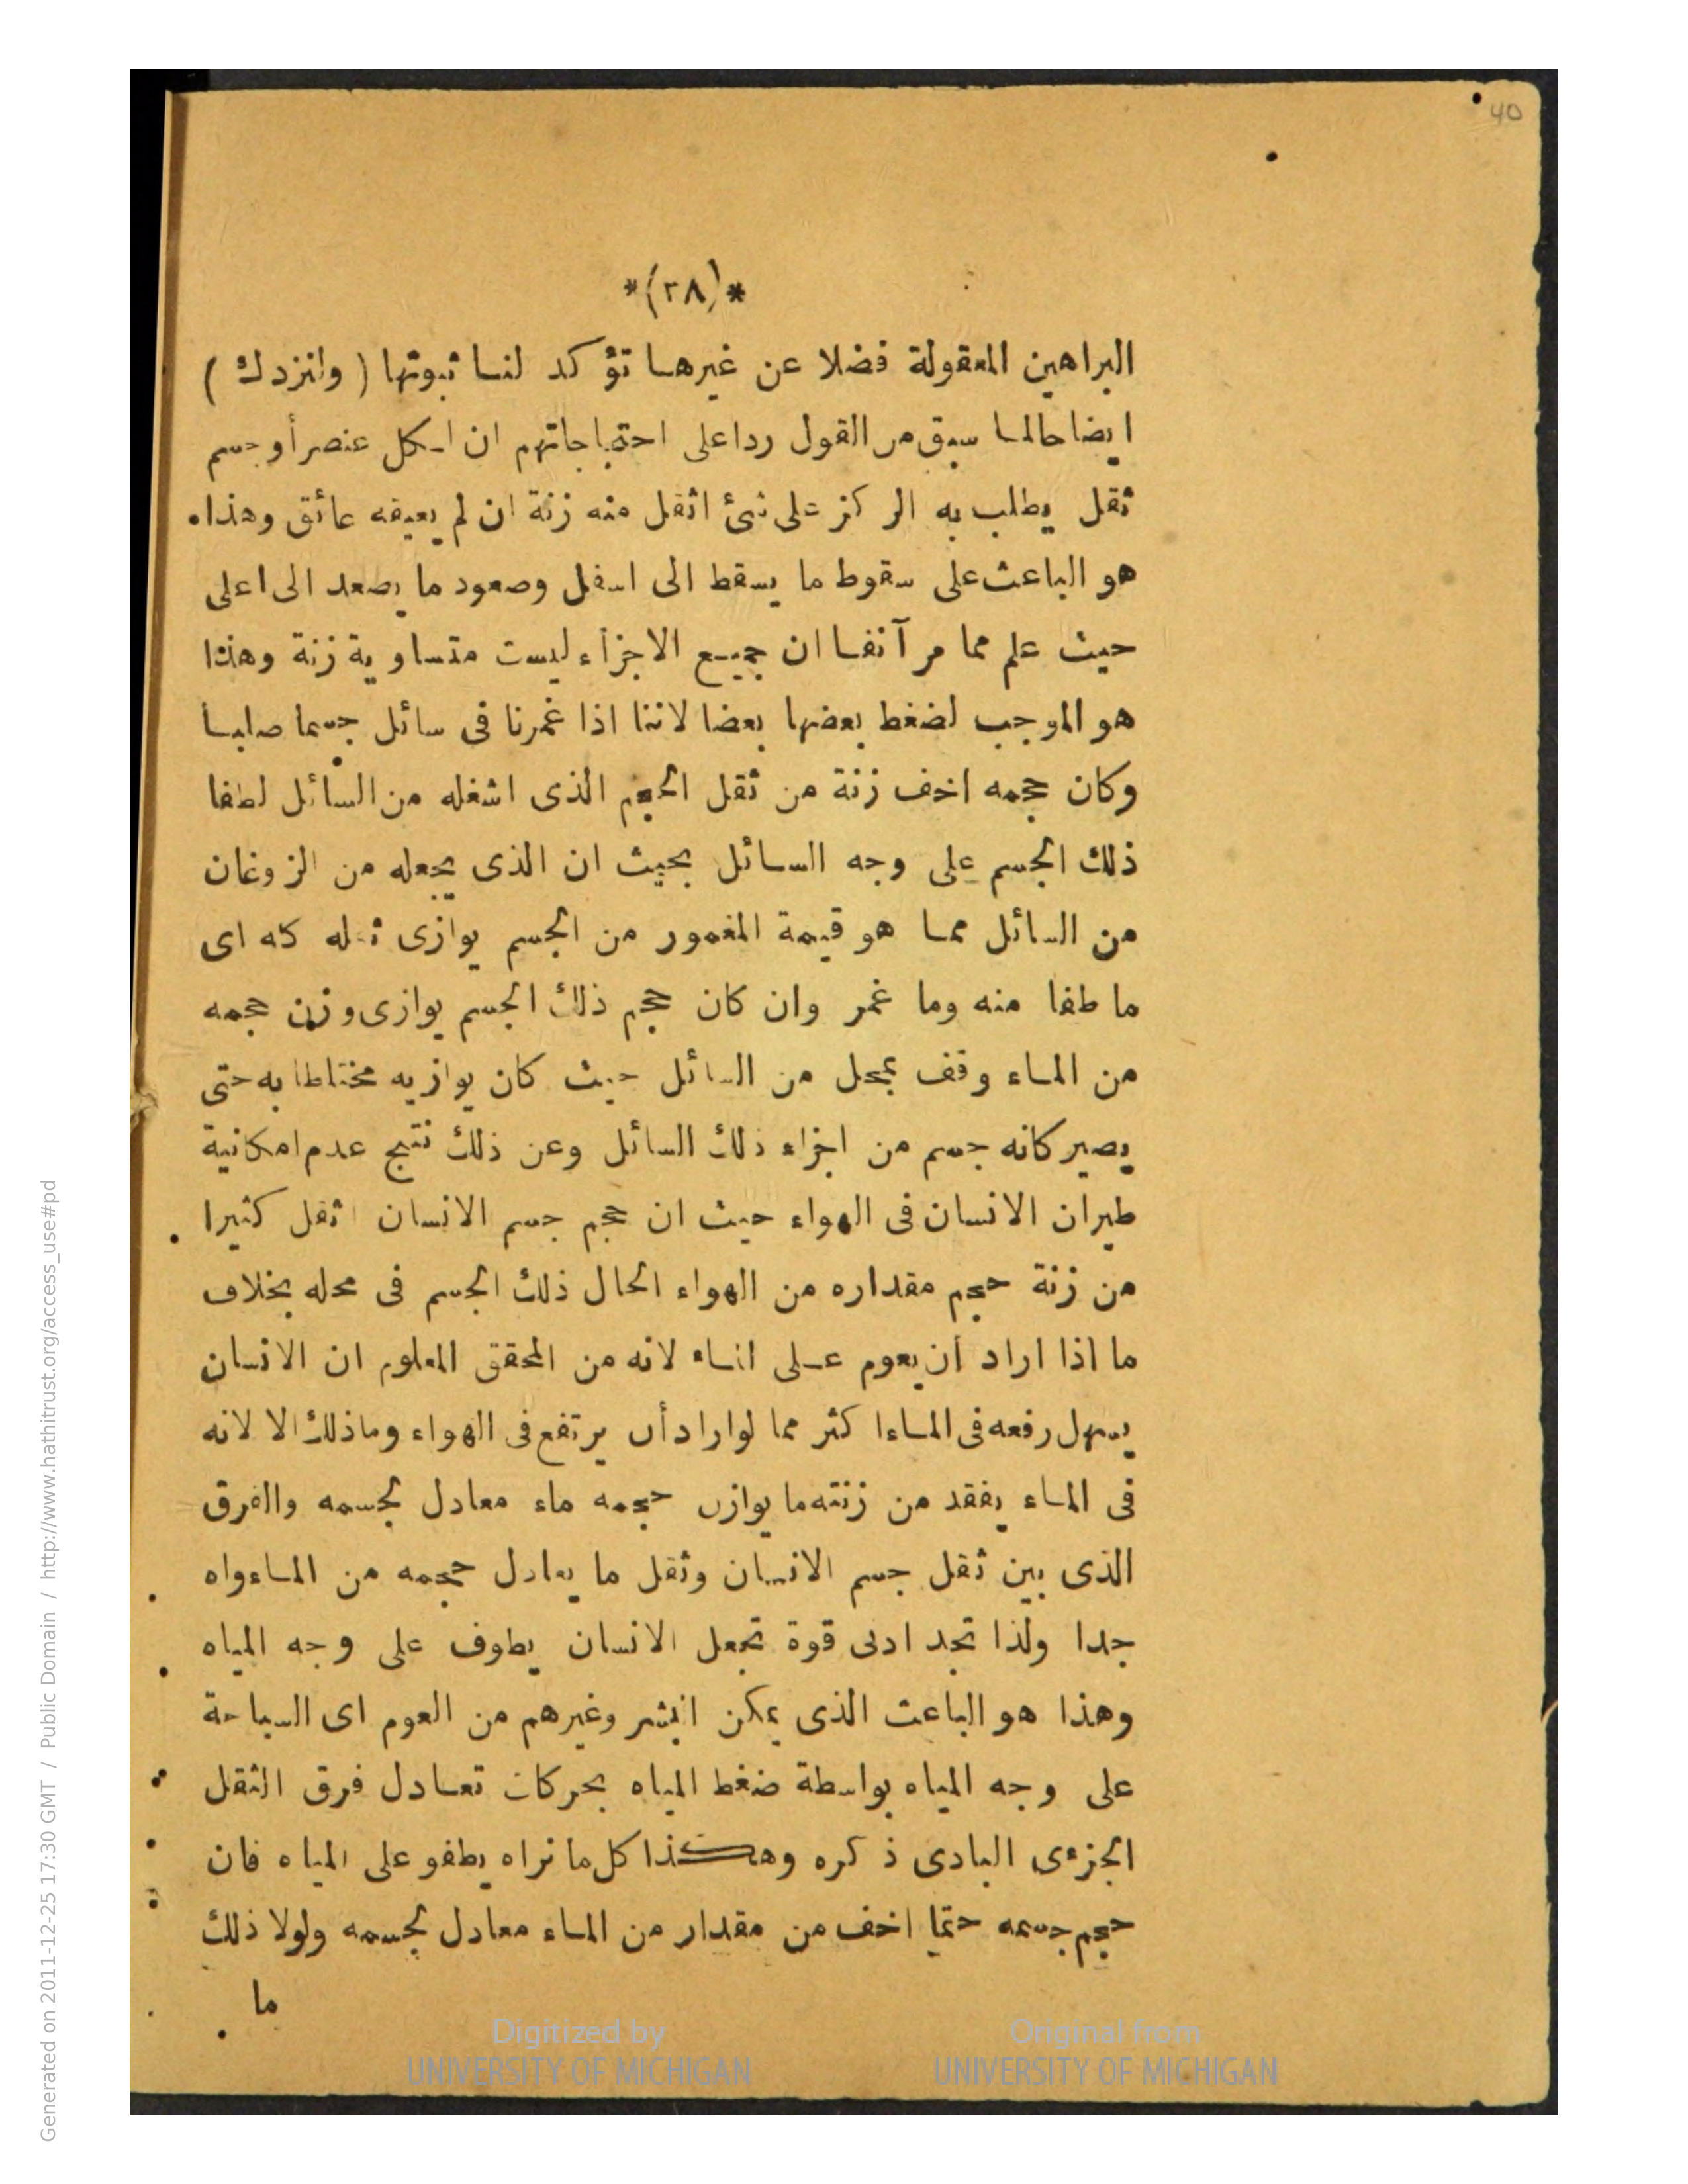 40
*(٣٨)*
البراهين المعقولة فضلا عن غيرها تؤكد لنا ثبوتها (وانزدك)
ايضاحا لما سبق من القول ردا على احتجاجاتهم ان لكل عنصر أو جسم
ثقل يطلب به الركز على شئ اثقل منه زنة ان لم يعيقه عائق وهذا
هو الباعث على سقوط ما يسقط الى اسفل وصعود ما يصعد الى اعلى
حيث علم مما مر آنفا ان جميع الاجزاء ليست متساوية زنة وهذا
هو الموجب لضغط بعضها بعضا لاننا اذا غمرنا فى سائل جسما صلبا
وكان حجمه اخف زنة من ثقل الحجم الذى اشغله من السائل لطفا
ذلك الجسم على وجه السائل بحيث ان الذى يجعله من الزوغان
من السائل مما هو قيمة المغمور من الجسم يوازى ثقله كه اى
ما طفا منه وما غمر وان كان حجم ذلك الجسم يوازى وزن حجمه
من الماء وقف بمحل من السائل حيث كان يوازيه مختلطا به حتى
يصير كانه جسم من اجزاء ذلك السائل وعن ذلك نتيج عدم امكانية
طيران الانسان فى الهواء حيث ان حجم جسم الانسان اثقل كثيرا
من زنة حجم مقداره من الهواء الحال ذلك الجسم فى محله بخلاف
ما اذا اراد أن يعوم على الماء لانه من المحقق المعلوم ان الانسان
يسهل رفعه فى الماء اكثر مما لو اراد أن يرتفع فى الهواء وما ذلك الا لانه
فى الماء يفقد من زنته ما يوازن حجمه ماء معادل لجسمه والفرق
الذى بين ثقل جسم الانسان وثقل ما يعادل حجمه من الماء واه
جدا ولذا تجد ادنى قوة تجعل الانسان يطوف على وجه المياه
وهذا هو الباعث الذى يمكن البشر وغيرهم من العوم اى السباحة
على وجه المياه بواسطة ضغط المياه بحركات تعادل فرق الثقل
الجزءى البادى ذكره وهكذا كل ما نراه يطفو على المياه فان
حجم جسمه حتما اخف من مقدار من الماء معادل لجسمه ولولا ذلك
ما
Digitized by
UNIVERSITY OF MICHIGAN
Original from
UNIVERSITY OF MICHIGAN
Generated on 2011-12-25 17:30 GMT / Public Domain / http://www.hathitrust.org/access_use#pd